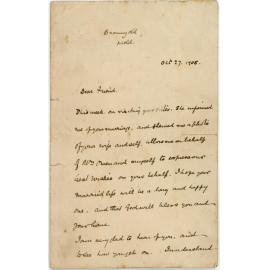 Mold.
Oct 27. 1908.
Dear Friend,
This week on visiting your sister. She informed
me of your marriage, and showed me a photo
of your wife and self. allow me on behalf
of Mrs and myself to express our
best wishes on your behalf. I hope your
married life will be a long and happy
one. and that God will bless you and
your home.
I am very glad to hear of you. and
how you get on. I understand